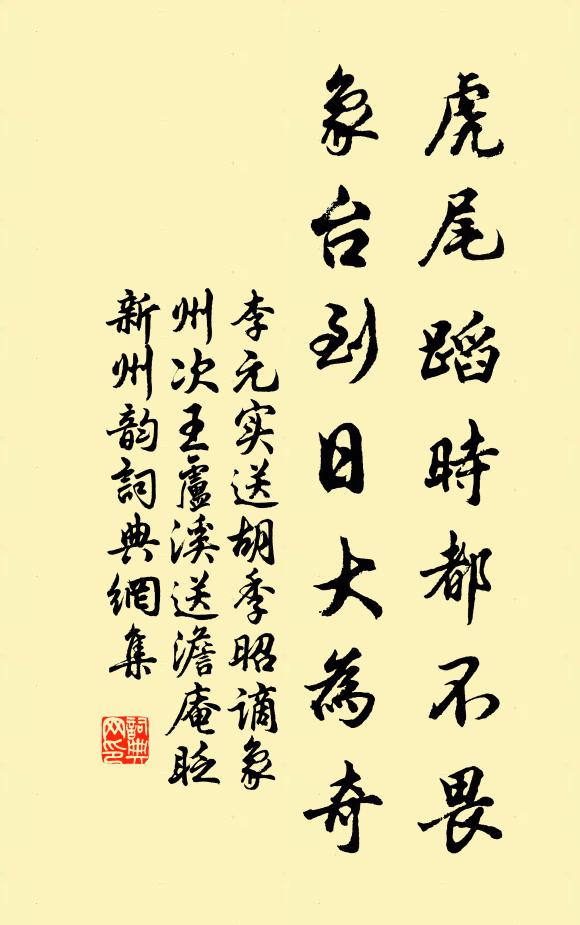 虎尾蹈時都不畏
象台到日大為奇
李元实送胡季昭谪象
州次王盧溪送澹庵贬
新州韵詞典網集
詞典网印